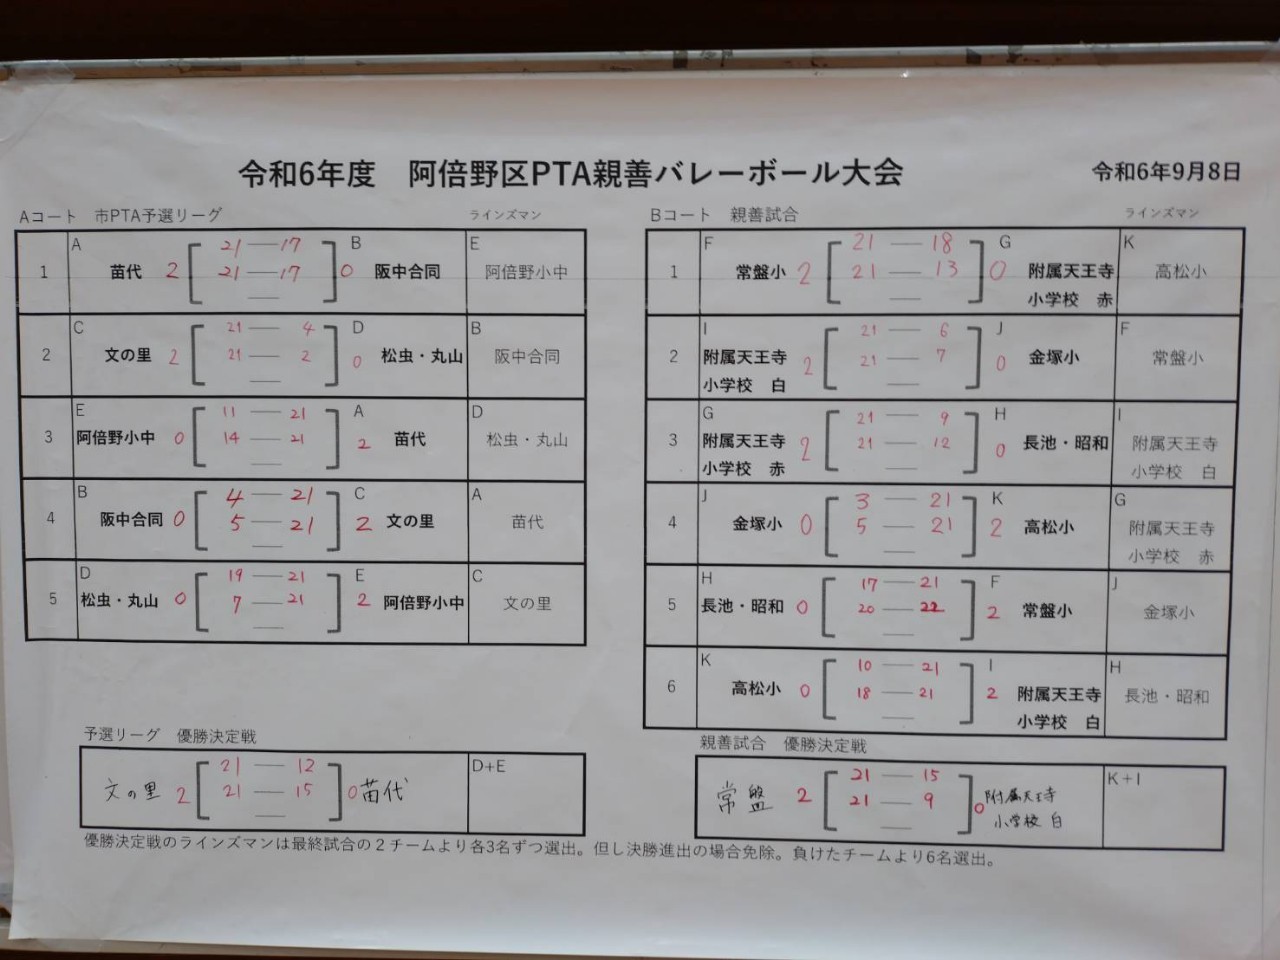 令和6年度　阿倍野区PTA親善バレーボール大会
令和6年9月8日
Aコート　市PTA予選リーグ
ラインズマン
1
A
苗代 2
21 — 17
21 — 17
—
B
0 阪中合同
E
阿倍野小中
2
C
文の里 2
21 — 4
21 — 2
—
D
0 松虫・丸山
B
阪中合同
3
E
阿倍野小中 0
11 — 21
14 — 21
—
A
2 苗代
D
松虫・丸山
4
B
阪中合同 0
4 — 21
5 — 21
—
C
2 文の里
A
苗代
5
D
松虫・丸山 0
19 — 21
7 — 21
—
E
2 阿倍野小中
C
文の里
予選リーグ　優勝決定戦
文の里 2
21 — 12
21 — 15
—
0 苗代
D+E
Bコート　親善試合
ラインズマン
1
F
常盤小 2
21 — 18
21 — 13
—
G
0 附属天王寺
小学校　赤
K
高松小
2
I
附属天王寺
小学校　白
2
21 — 6
21 — 7
—
J
0 金塚小
F
常盤小
3
G
附属天王寺
小学校　赤
2
21 — 9
21 — 12
—
H
0 長池・昭和
I
附属天王寺
小学校　白
4
J
金塚小 0
3 — 21
5 — 21
—
K
2 高松小
G
附属天王寺
小学校　赤
5
H
長池・昭和 0
17 — 21
20 — 22
—
F
2 常盤小
J
金塚小
6
K
高松小 0
10 — 21
18 — 21
—
I
2 附属天王寺
小学校　白
H
長池・昭和
親善試合　優勝決定戦
常盤 2
21 — 15
21 — 9
—
0 附属天王寺
小学校 白
K+I
優勝決定戦のラインズマンは最終試合の２チームより各3名ずつ選出。但し決勝進出の場合免除。負けたチームより6名選出。